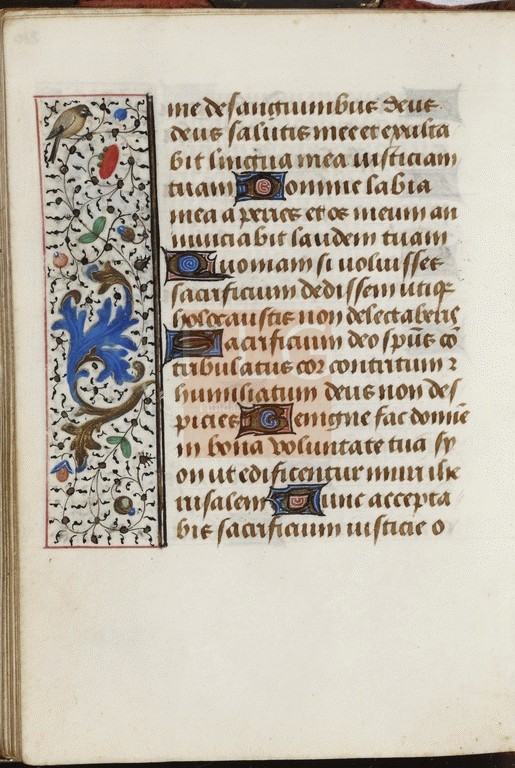 me de sanguinibus deus
deus salutis mee et exulta
bit lingua mea iusticiam
tuam Domine labia
mea aperies et os meum an
nunciabit laudem tuam
Quoniam si voluisses
sacrificium dedissem utiqꝫ
holocaustis non delectaberis
Sacrificium deo spūs cō
tribulatus cor contritum ⁊
humiliatum deus non des
picies Benigne fac domīe
in bona voluntate tua sy
on ut edificentur muri ihe
rusalem Tunc accepta
bis sacrificium iusticie o